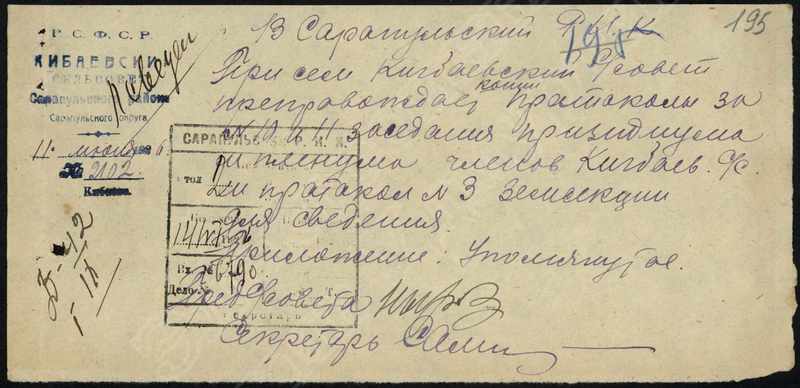 195
Р. С. Ф. С. Р.
КИГБАЕВСКИЙ
СЕЛЬСОВЕТ
Сарапульского района
Сарапульского округа
11 192 6
№ 2102
Кигбаево
В Сарапульский Р. И. К
При сем Кигбаевский С/совет
препровождает копии пратаколы за
№ 10 и 11 заседания призидиума
и пленума членов Кигбаев. С/с.
и пратакол № 3 Земсекции
Для сведения.
Приложение: Упомянутое.
Пред С/совета
Секретарь
САРАПУЛЬСК Р. И. К.
стол
14/VII
Вх. № 6790
Дело №
Секретарь